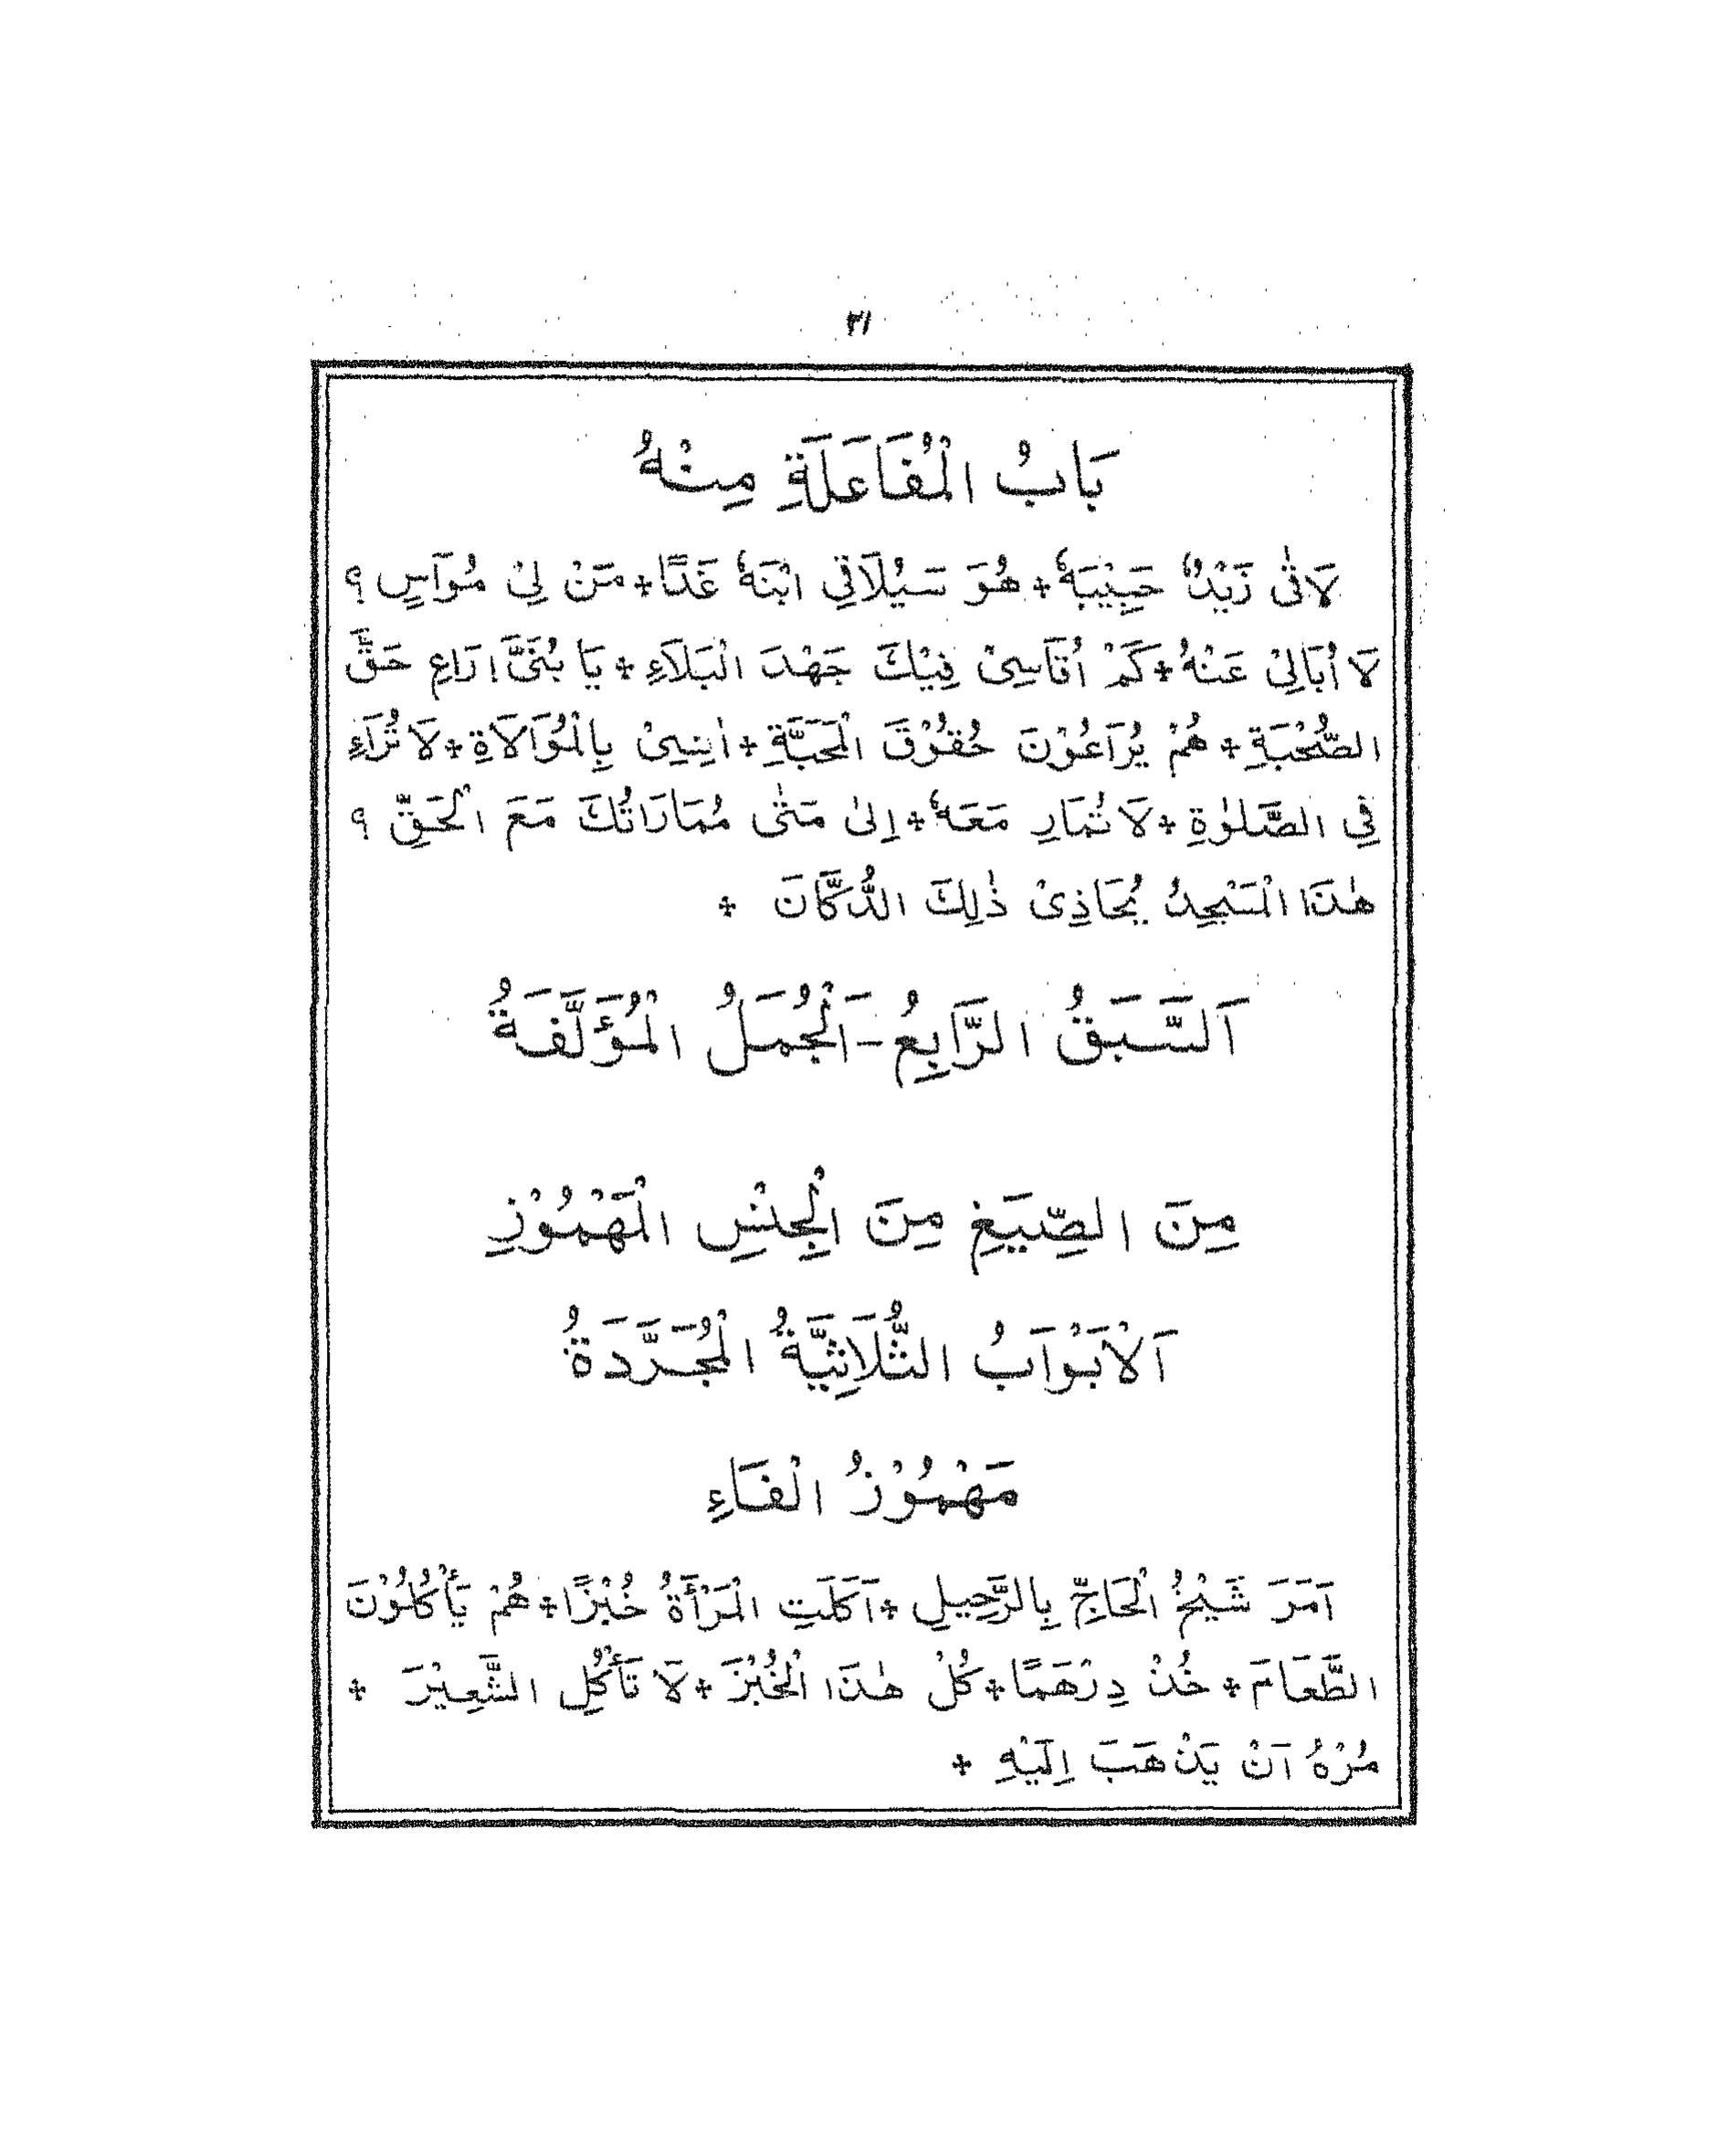 ٣١
بَابُ الْمُفَاعَلَةِ مِنْهُ
لَاقٰى زَيْدٌ حَبِيْبَهٗ + هُوَ سَيُلَاقِي ابْنَهٗ غَدًا + مَنْ لِيْ مُوَاسٍ ؟
لَا أُبَالِيْ عَنْهُ + كَمْ أُقَاسِىْ فِيْكَ جَهْدَ الْبَلَاءِ + يَا بُنَىَّ! رَاعِ حَقَّ
الصُّحْبَةِ + هُمْ يُرَاعُوْنَ حُقُوْقَ الْمَحَبَّةِ + اٰنِسِىْ بِالْمُوَالَاةِ + لَا تُرَاءِ
فِي الصَّلٰوةِ + لَا تُمَارِ مَعَهٗ + اِلىٰ مَتٰى مُمَارَاتُكَ مَعَ الْحَقِّ ؟
هٰذَا الْمَسْجِدُ يُحَاذِىْ ذٰلِكَ الدُّكَّانَ +
اَلسَّبَقُ الرَّابِعُ - اَلْجُمَلُ الْمُؤَلَّفَةُ
مِنَ الصِّيَغِ مِنَ الْجِنْسِ الْمَهْمُوْزِ
اَلْاَبْوَابُ الثُّلَاثِيَّةُ الْمُجَرَّدَةُ
مَهْمُوْزُ الْفَاءِ
اَمَرَ شَيْخُ الْحَاجِّ بِالرَّحِيلِ + اَكَلَتِ الْمَرْأَةُ خُبْزًا + هُمْ يَأْكُلُوْنَ
الطَّعَامَ + خُذْ دِرْهَمًا + كُلْ هٰذَا الْخُبْزَ + لَا تَأْكُلِ الشَّعِيْرَ +
مُرْهُ اَنْ يَذْهَبَ اِلَيْهِ +